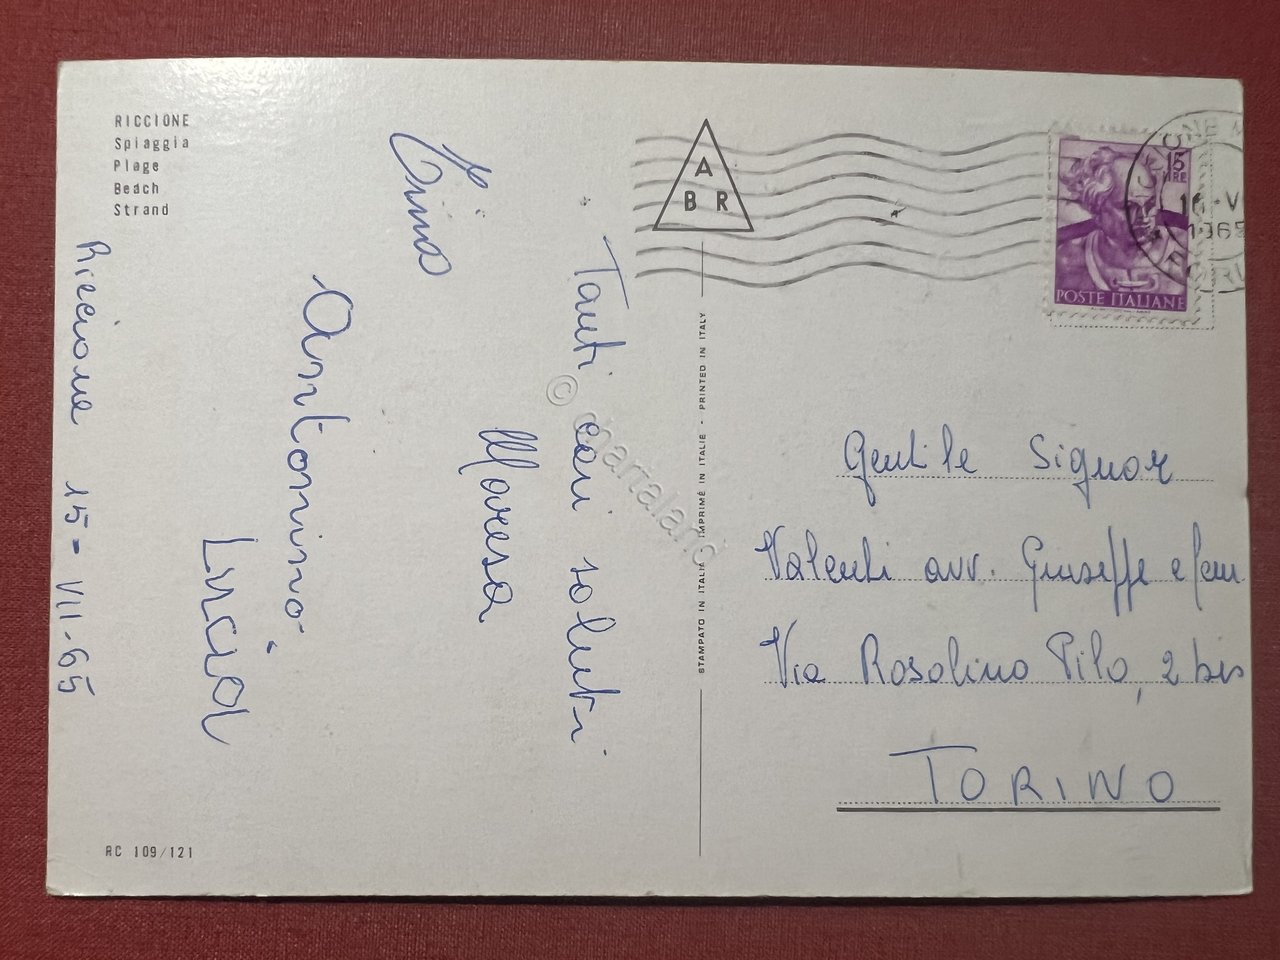 RICCIONE
Spiaggia
Plage
Beach
Strand
Riccione 15 = VII-65
Tanti cari saluti
Maresa
Antonino
Lucia
RC 109/121
A
B R
STAMPATO IN ITALIA - IMPRIMÉ IN ITALIE - PRINTED IN ITALY
15
LIRE
POSTE ITALIANE
16 · V
1965
Gentile Signor
Valenti avv. Giuseppe e fam
Via Rosolino Pilo, 2 bis
TORINO
© chartaland